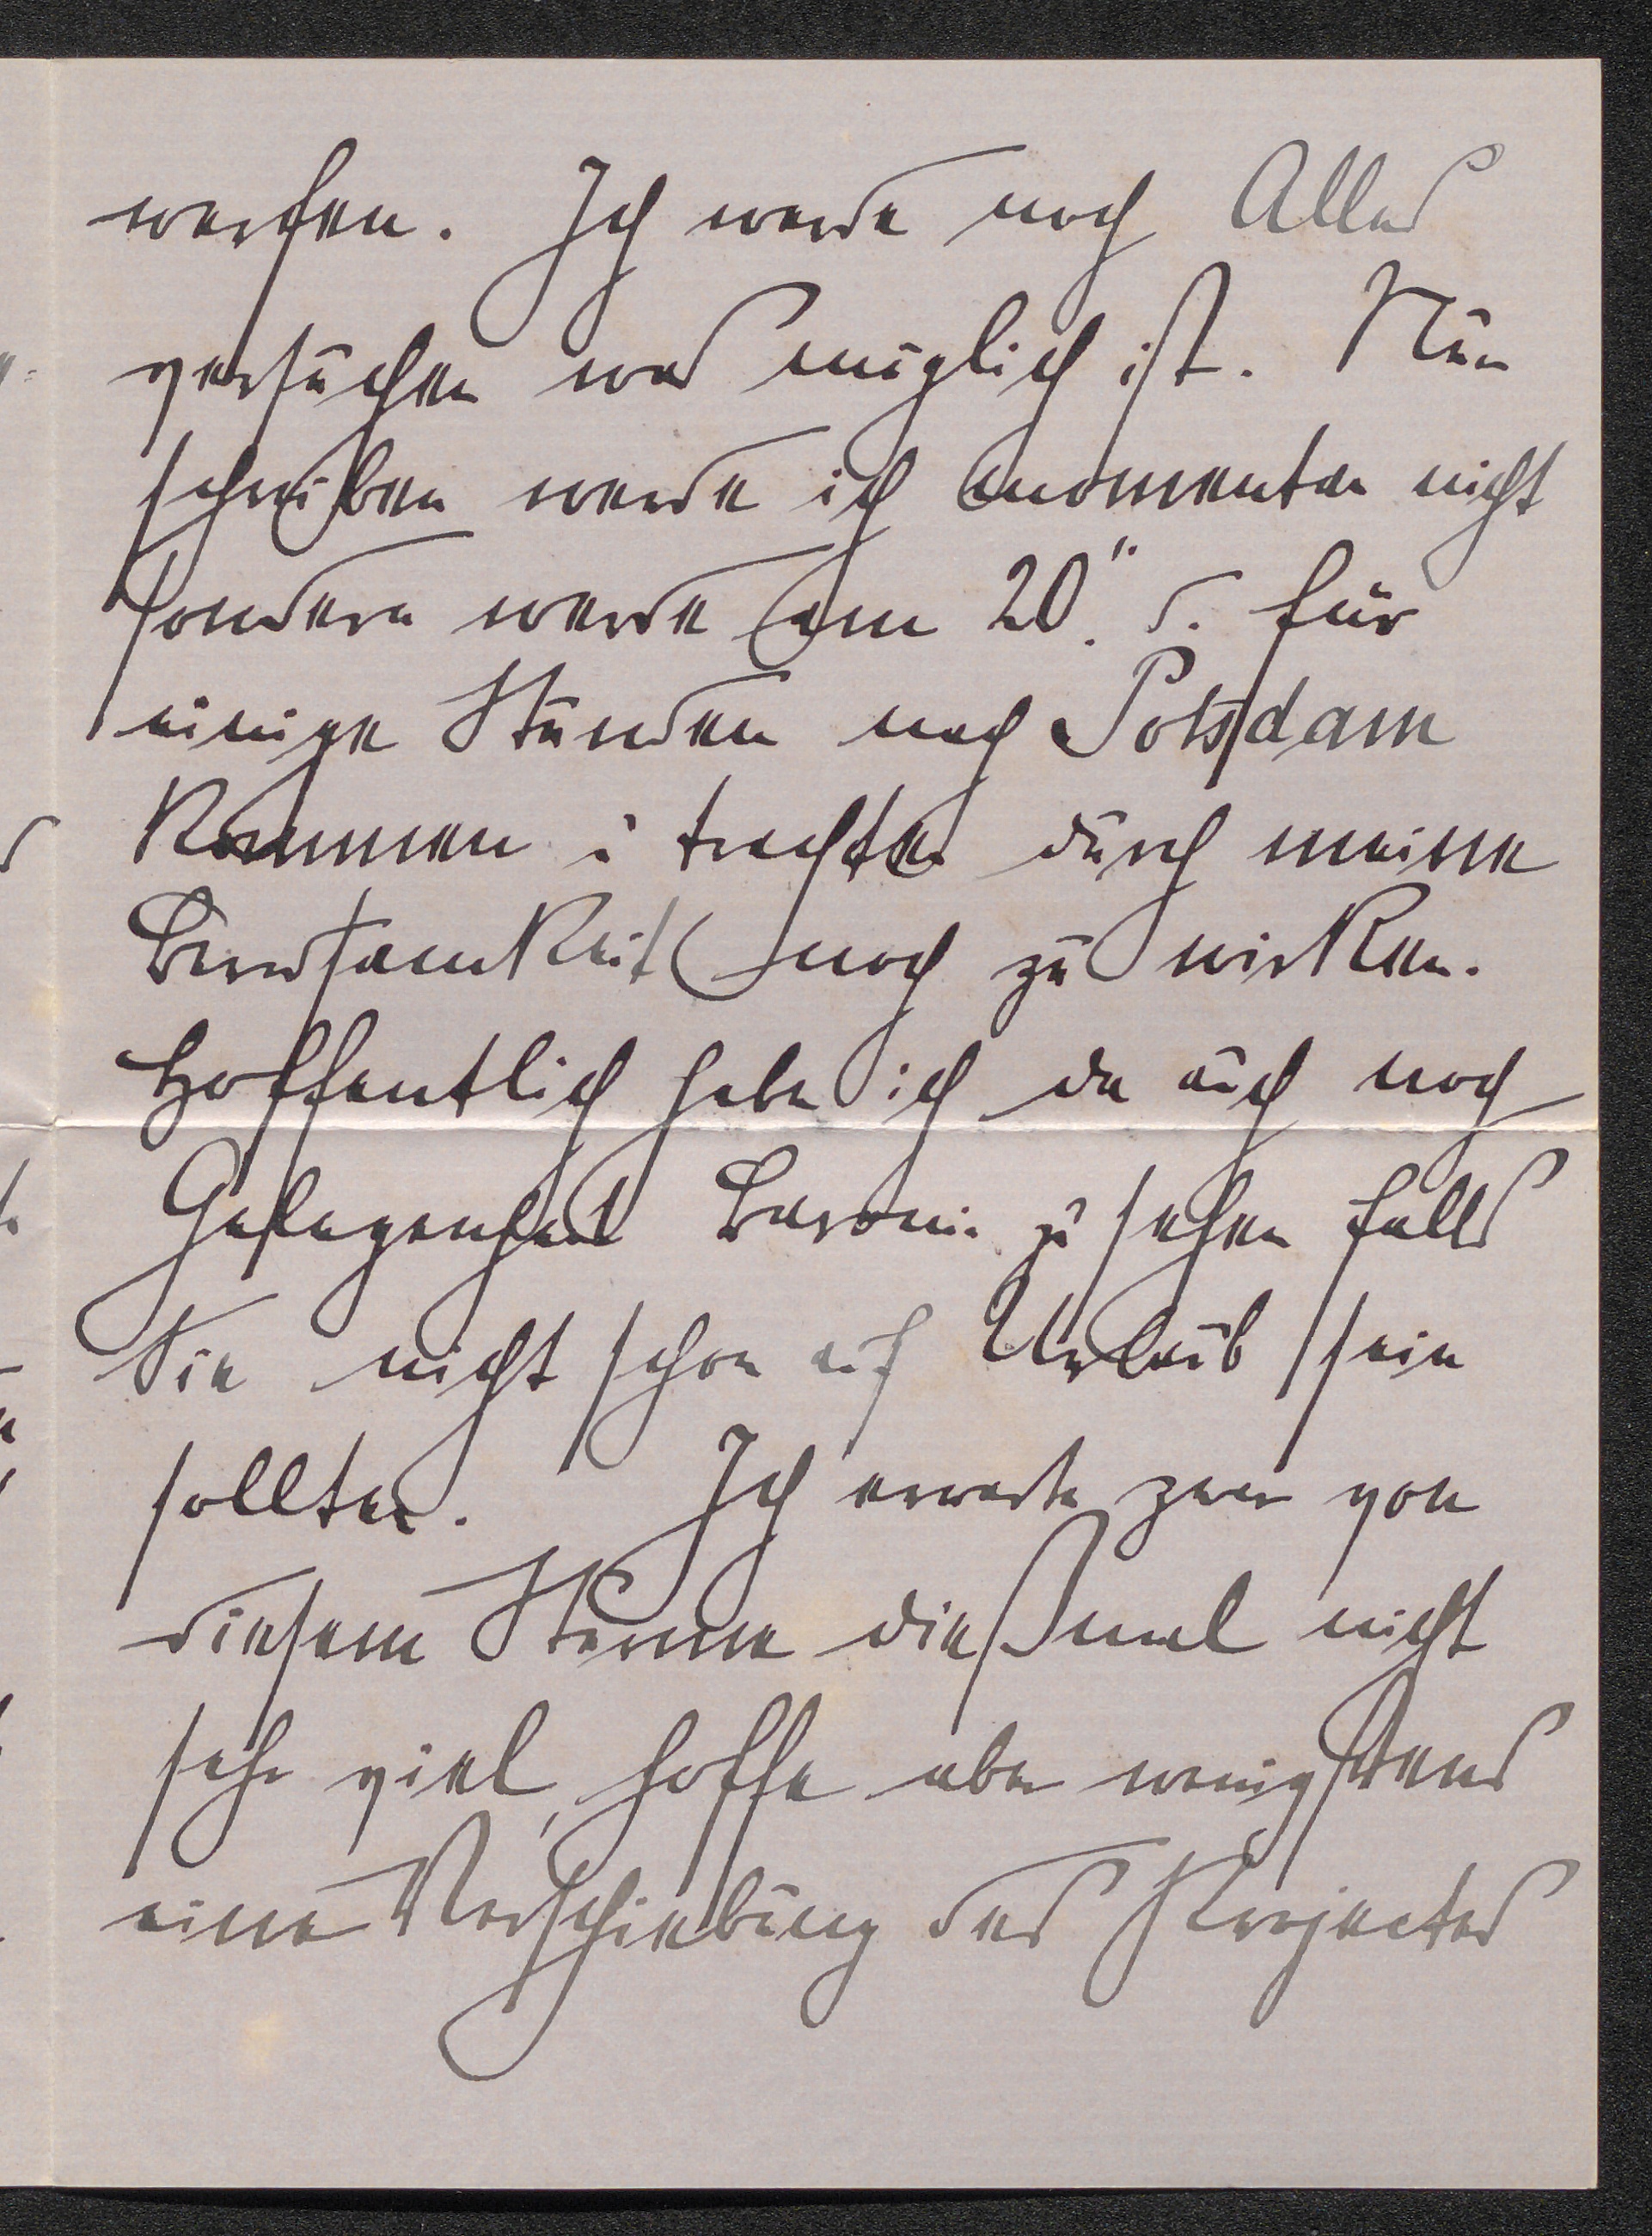 werfen. Ich werde noch Alles
versuchen was möglich ist. Nun
schreiben werde ich momentan nicht
sondern werde am 20. d. für
einige Stunden nach Potsdam
kommen u trachten durch meine
Beredsamkeit noch zu wirken.
Hoffentlich habe ich da auch noch
Gelegenheit Baronin zu sehen falls
Sie nicht schon auf Urlaub sein
sollten. Ich erwarte zwar von
diesem Sturme dießmal nicht
sehr viel, hoffe aber wenigstens
eine Verschiebung des Projectes